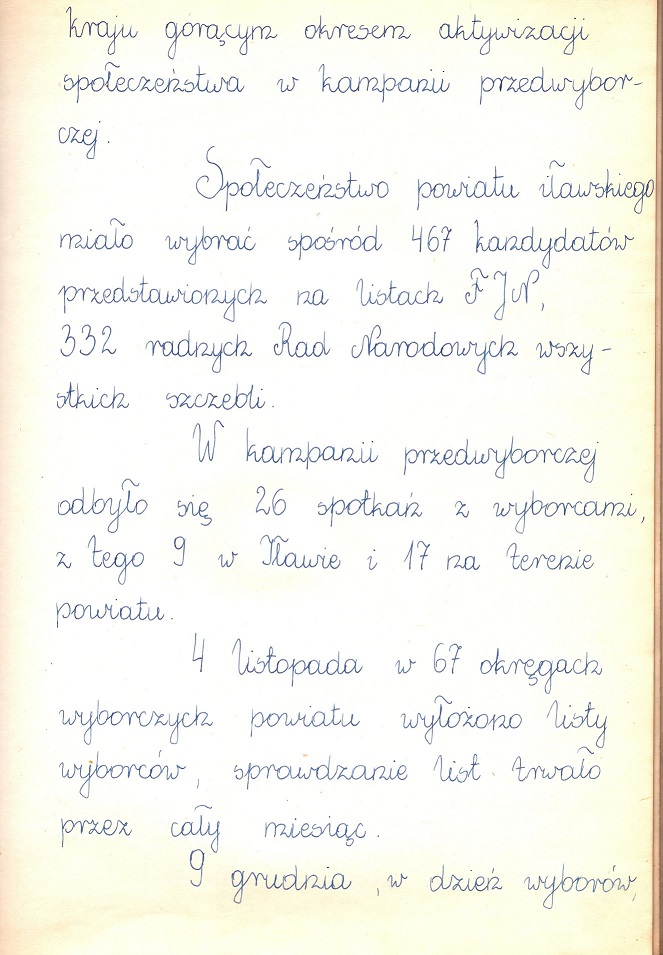 kraju gorącym okresem aktywizacji
społeczeństwa w kampanii przedwybor-
czej.
Społeczeństwo powiatu iławskiego
miało wybrać spośród 467 kandydatów
przedstawionych na listach FJN,
332 radnych Rad Narodowych wszy-
stkich szczebli.
W kampanii przedwyborczej
odbyło się 26 spotkań z wyborcami,
z tego 9 w Iławie i 17 na terenie
powiatu.
4 listopada w 67 okręgach
wyborczych powiatu wyłożono listy
wyborców, sprawdzanie list trwało
przez cały miesiąc.
9 grudnia, w dzień wyborów,